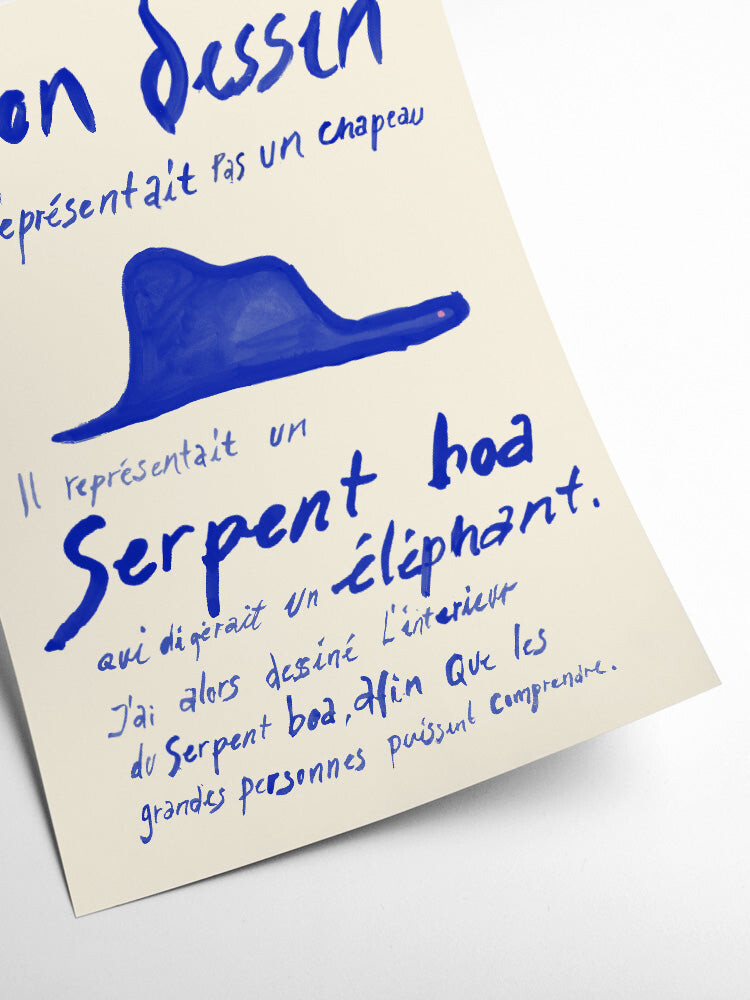 on dessin
représentait Pas un chapeau
Il représentait un
Serpent boa
qui digérait un éléphant.
J'ai alors dessiné L'interieur
du Serpent boa, Afin Que les
grandes personnes puissent comprendre.